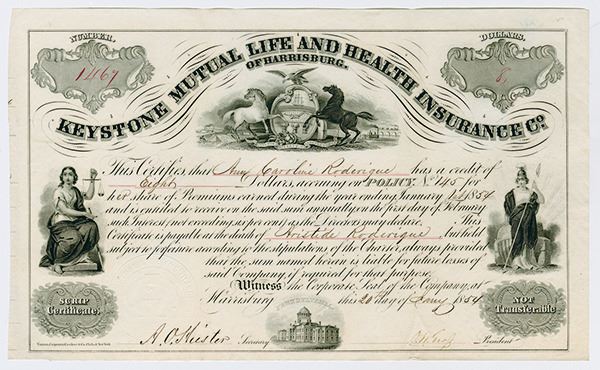 NUMBER.
1467
DOLLARS.
8,
KEYSTONE MUTUAL LIFE AND HEALTH INSURANCE Co.
OF HARRISBURG.
This Certifies, that Ann Caroline Roderigue has a credit of
Eight Dollars, accruing on POLICY No. 145 for
her share of Premiums earned during the year ending January 1st 1854
and is entitled to receive on the said sum annually on the first day of February
such Interest (not exceeding six per cent) as the Directors may declare. This
Certificate is payable at the death of Aristide Roderigue but held
subject to forfeiture according to the stipulations of the Charter, always provided
that the sum named herein is liable for future losses of
said Company, if required for that purpose.
Witness the Corporate Seal of the Company, at
Harrisburg this 20 day of Jany 1854
SCRIP
Certificate;
NOT
Transferable
A.O. Hiester Secretary
President